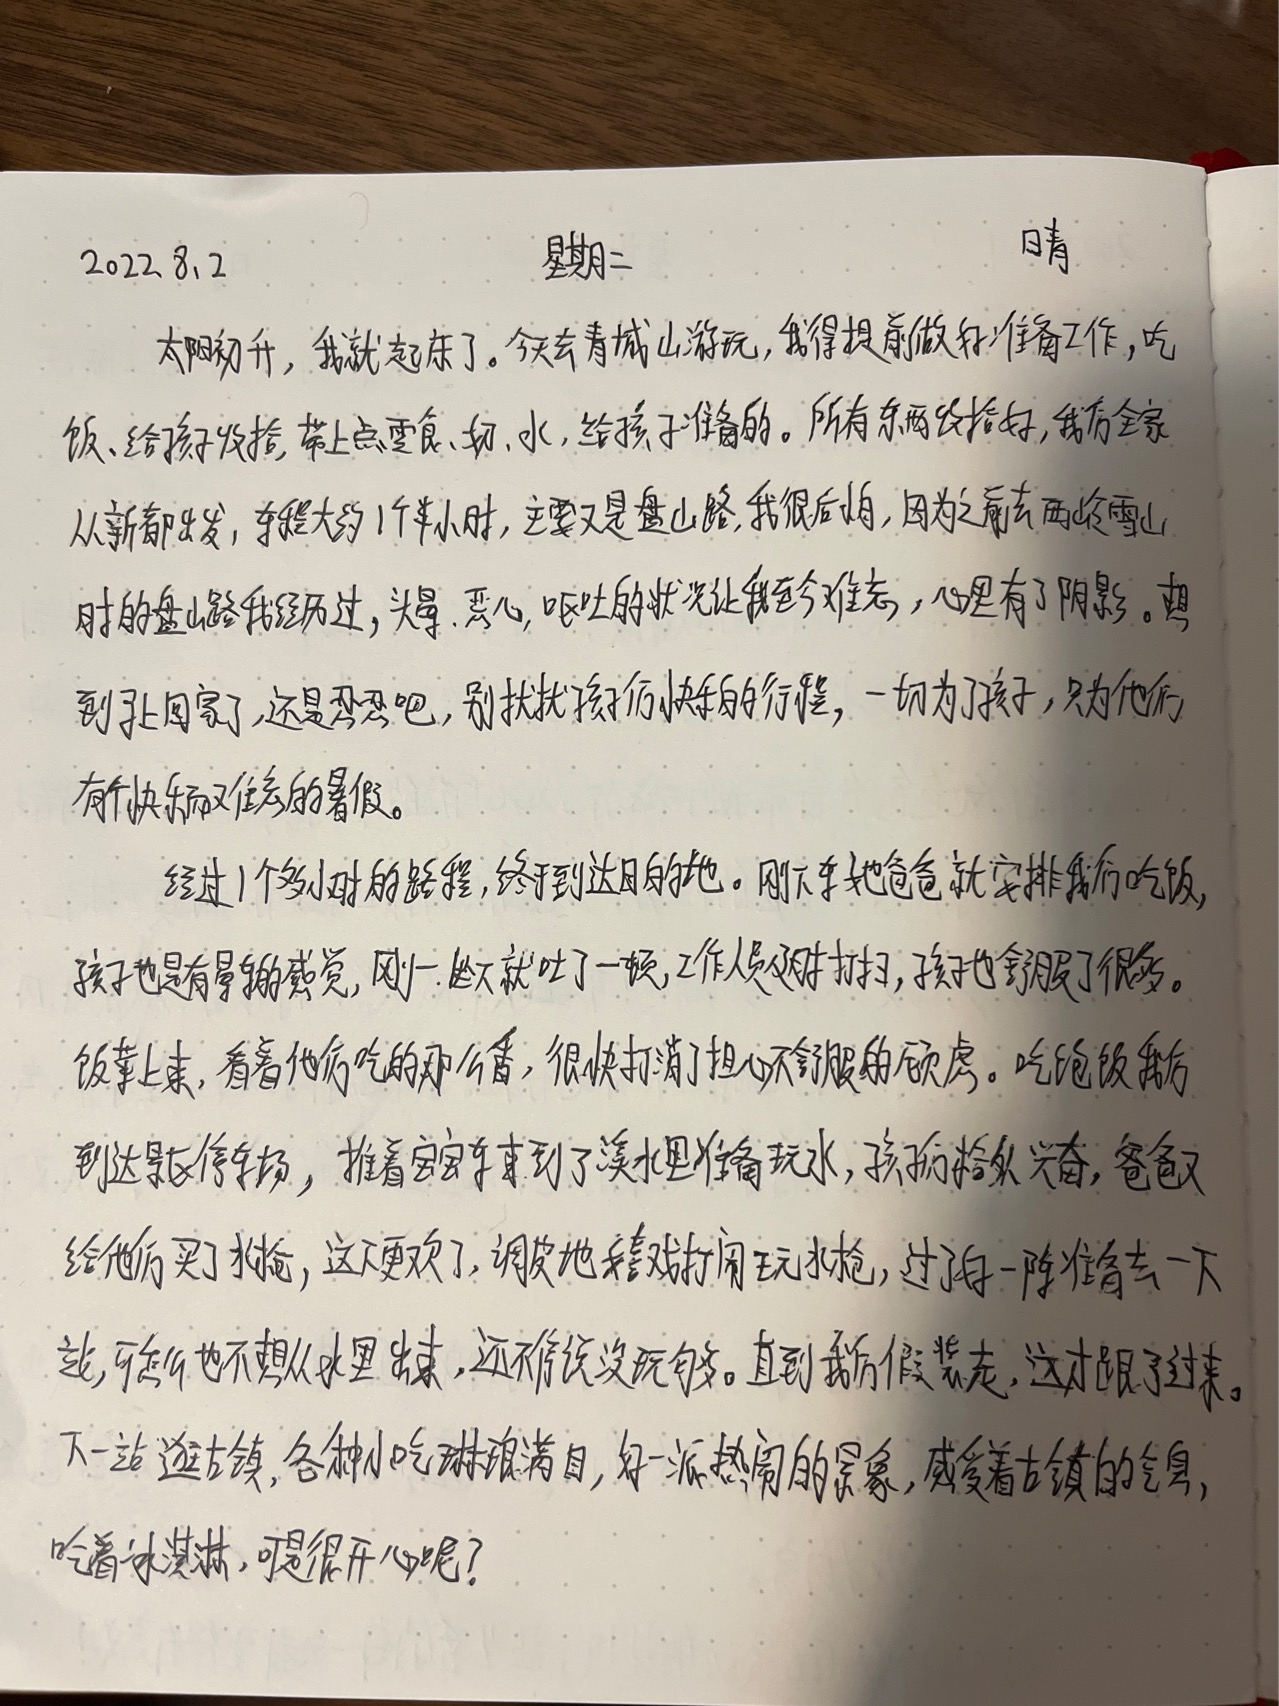 2022.8.2 星期二 晴
太阳初升，我就起床了。今天去青城山游玩，我得提前做好准备工作，吃
饭、给孩子收拾，带上点零食、奶、水，给孩子准备的。所有东西收拾好，我们全家
从新都出发，车程大约1个半小时，主要又是盘山路，我很后怕，因为之前去西岭雪山
时的盘山路我经历过，头晕、恶心，呕吐的状况让我至今难忘，心里有了阴影。想
到马上回家了，还是忍忍吧，别扰扰孩子们快乐的行程，一切为了孩子，只为他们
有个快乐而又难忘的暑假。
经过1个多小时的路程，终于到达目的地。刚下车她爸爸就安排我们吃饭，
孩子也是有晕车的感觉，刚一坐下就吐了一顿，工作人员及时打扫，孩子也舒服了很多。
饭菜上来，看着他们吃的那么香，很快打消了担心不舒服的顾虑。吃饱饭我们
到达景区停车场，推着宝宝车来到了溪水里准备玩水，孩子们格外兴奋，爸爸又
给他们买了水枪，这下更欢了，调皮地嬉戏打闹玩水枪，过了好一阵准备去一下
站，可怎么也不想从水里出来，还不停说没玩够。直到我们假装走，这才跟了过来。
下一站逛古镇，各种小吃琳琅满目，好一派热闹的景象，感受着古镇的气息，
吃着冰淇淋，可是很开心呢？